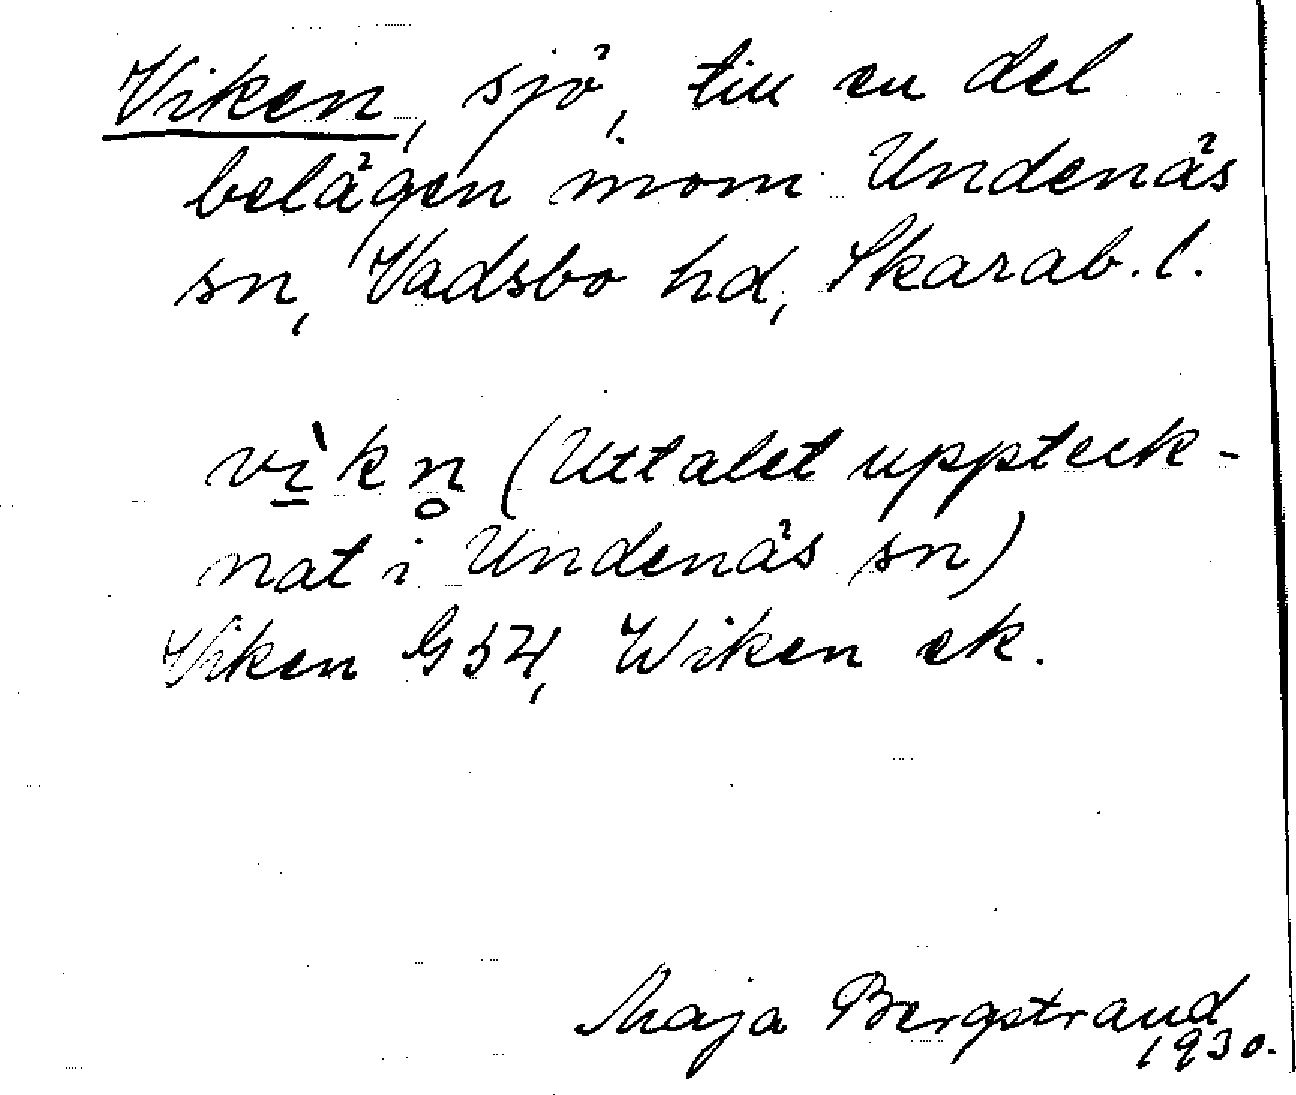 Viken, sjö, till en del
belägen inom Undenäs
sn, Vadsbo hd, Skarab. l.
vì̱kn̥ (Uttalet uppteck-
nat i Undenäs sn)
Viken G54, Wiken ek.
Maja Bergstrand
1930.